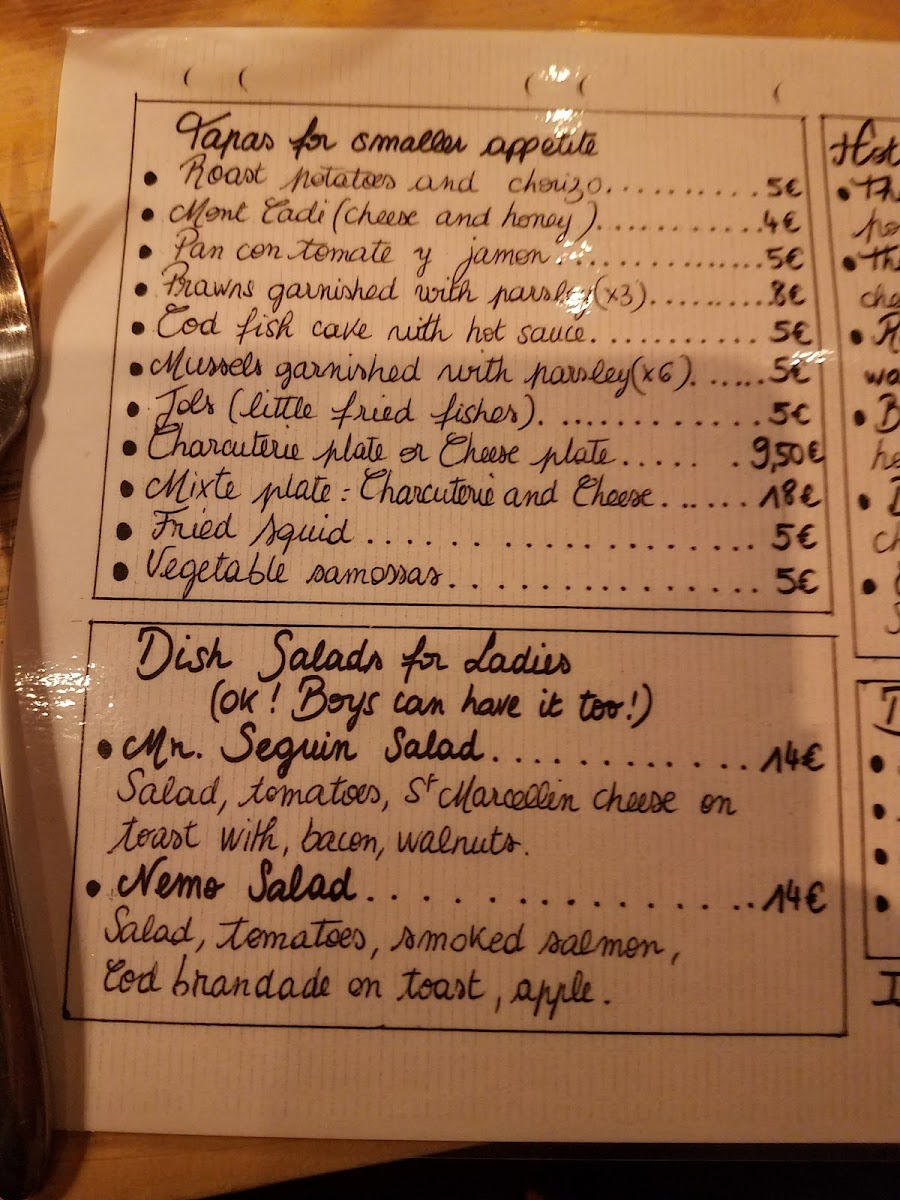 Tapas for smaller appetite
• Roast potatoes and chorizo.......... 5€
• Mont Cadi (cheese and honey)............4€
• Pan con tomate y jamon...............5€
• Prawns garnished with parsley(x3).........8€
• Cod fish cake with hot sauce........... 5€
• Mussels garnished with parsley(x6)......5€
• Jols (little fried fishes)..............5€
• Charcuterie plate or Cheese plate..... . 9,50€
• Mixte plate : Charcuterie and Cheese...... 18€
• Fried squid .................. 5€
• Vegetable samossas............... 5€
Dish Salads for Ladies
(OK! Boys can have it too!)
• Mr. Seguin Salad............. 14€
Salad, tomatoes, St Marcellin cheese on
toast with, bacon, walnuts.
• Nemo Salad..................14€
Salad, tomatoes, smoked salmon,
Cod brandade on toast, apple.
Hot